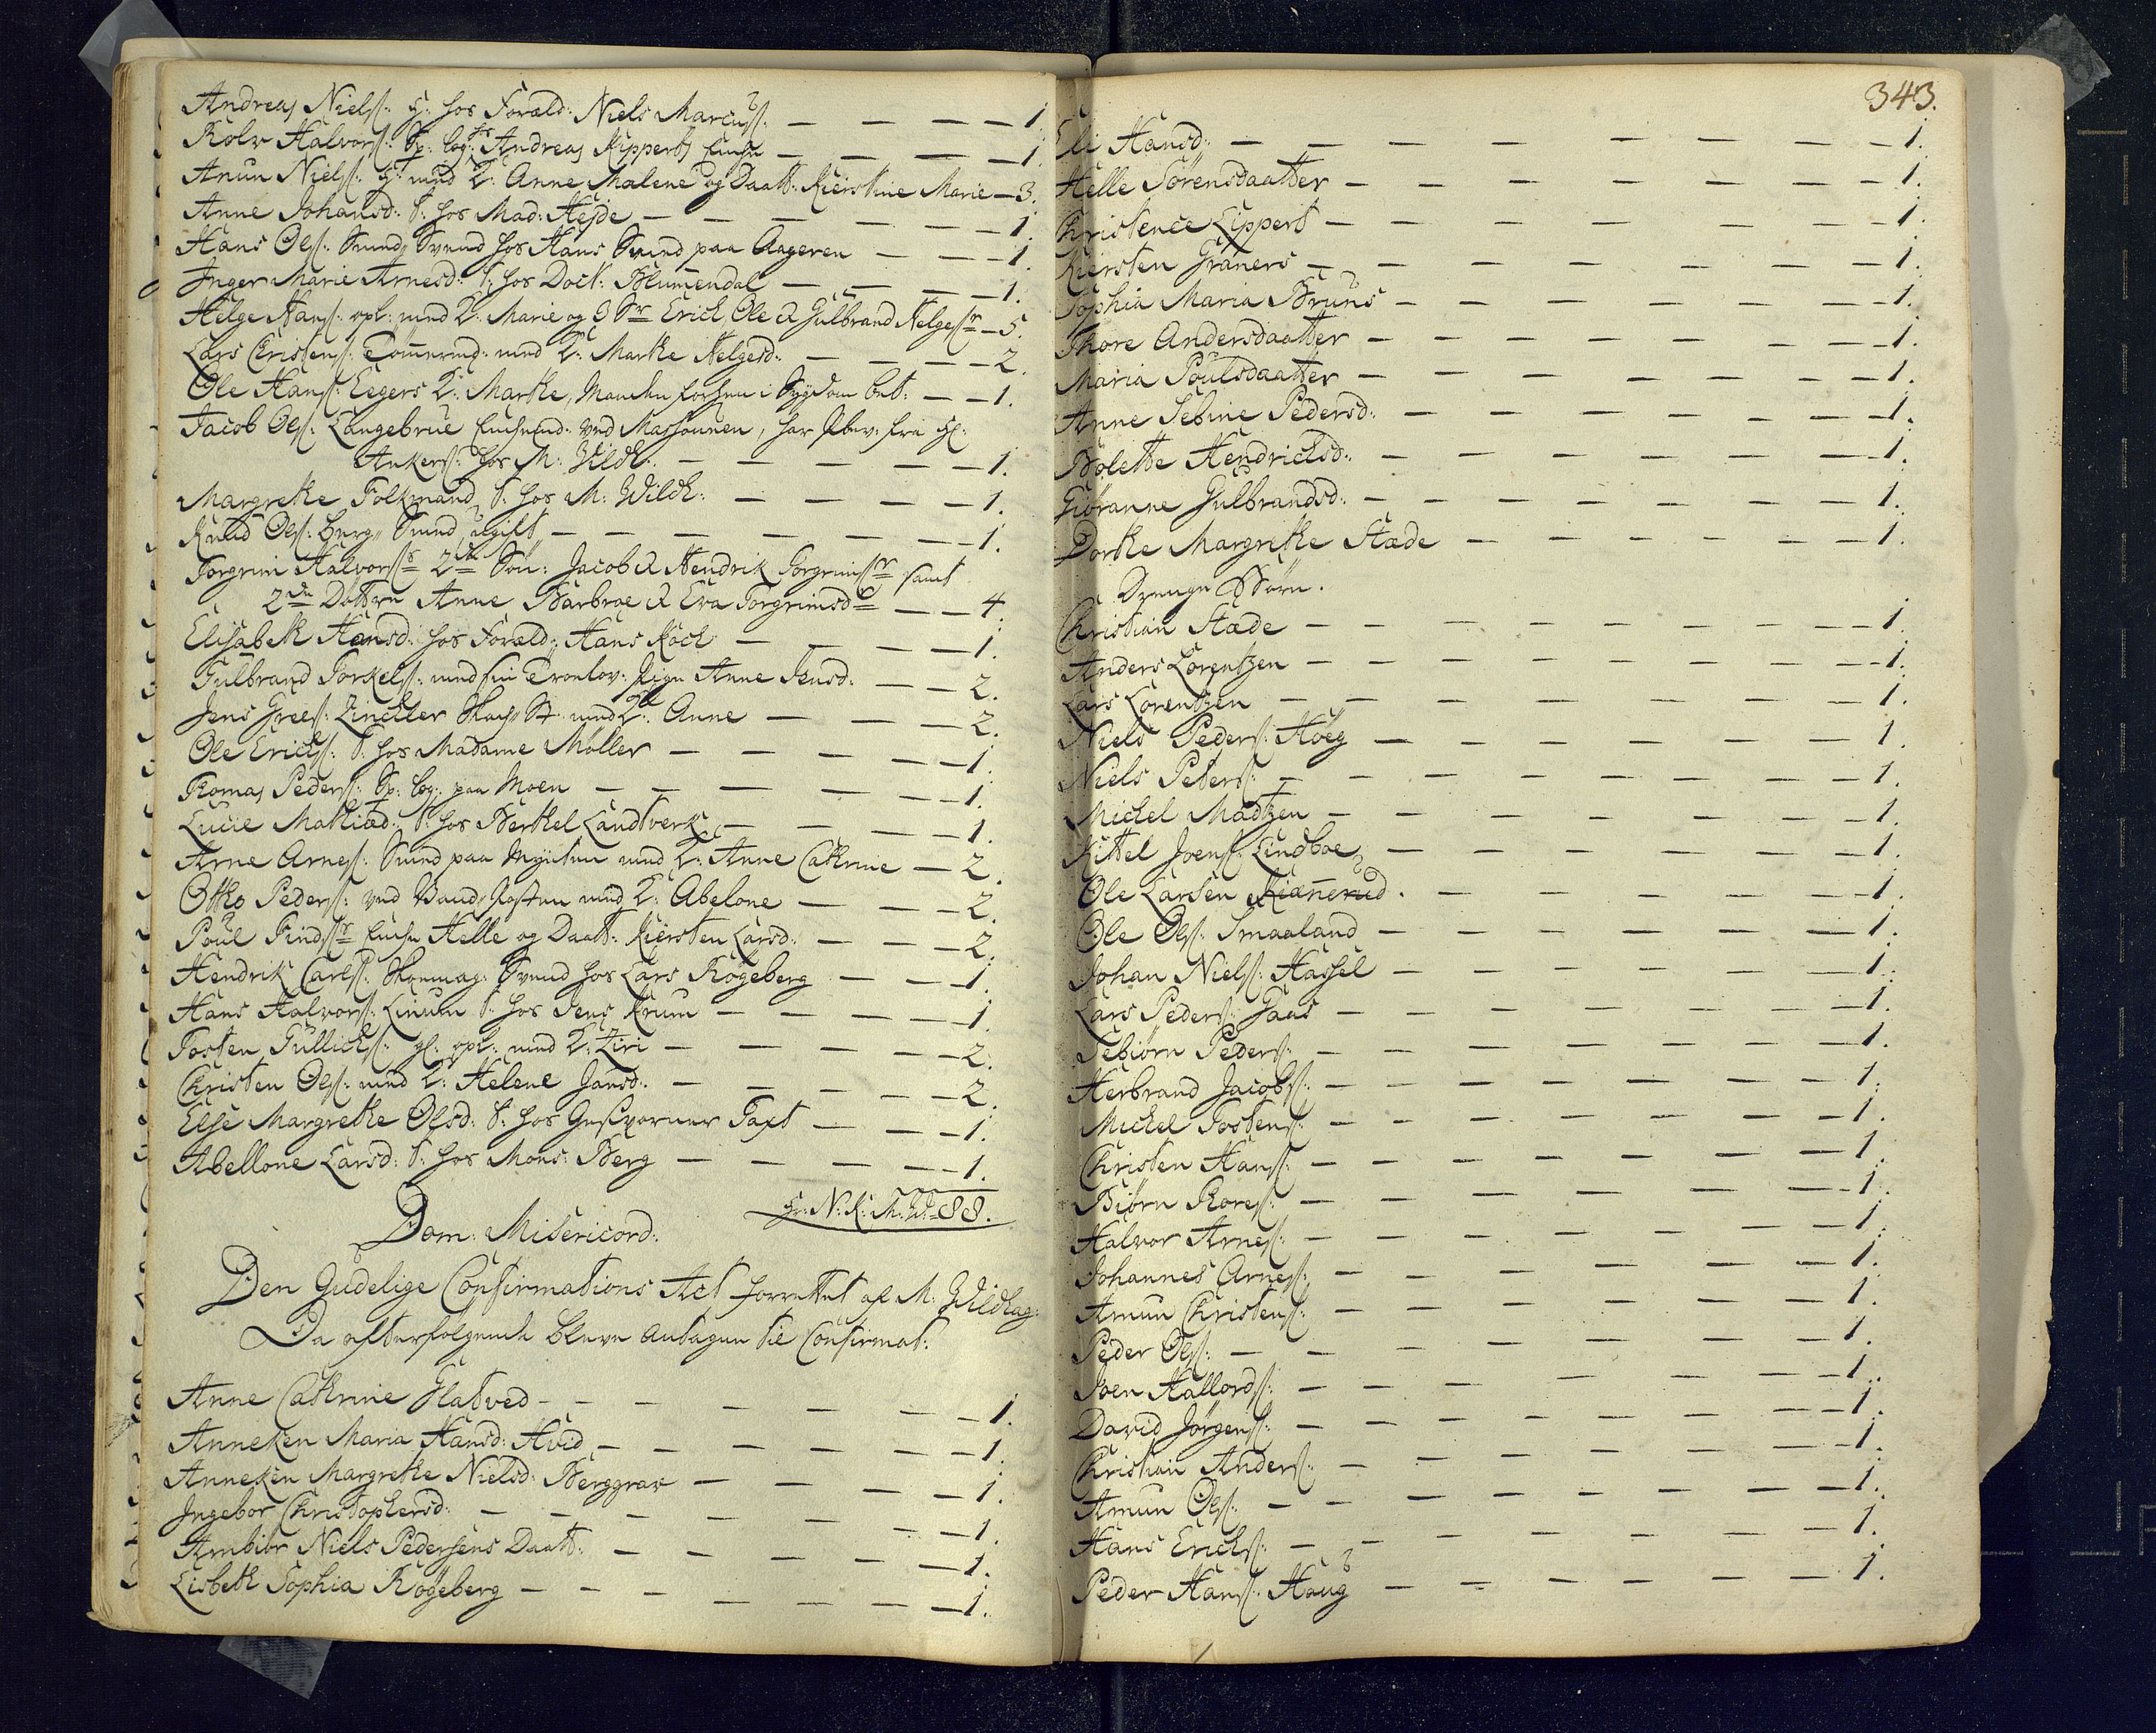 Andreas Niels: hos Foræld: Niels Marcus: — — — 1.
Rolv Halvors: Sp: log: hos Andreas Kipperts Enche — — — 1.
Anun Niels: G: med K: Anne Malene og Daatt: Kierstine Marie — 3.
Anne Johansd: T: hos Mad: Hejde — — — 1.
Hans Ols: Smed Svend hos Hans Smed paa Aageren — — — 1.
Inger Marie Arnesd: T: hos Doct: Blumendal — — — 1.
Helge Hans: opl: med K: Marie og 3 Sr Erich Ole & Gulbrand Helgessr — 5.
Lars Christens: Tømermd: med K: Marthe Helgesd: — — — 2.
Ole Hans: Eegers K: Marthe, Manden forhen i Sygdom bet: — — 1.
Jacob Ols: Langebrue Enchemd: ved Massovnen, har fra Hl:
Ankers: hos M: Wildh: — — — 1.
Margrethe Folkmand T: hos M: Wildh: — — — 1.
Knud Ols: Berg Smed ugift — — — 1.
Torgrim Halvorssr 2de Søn: Jacob & Hendrik Torgrimssr samt
2de Døttre Anne Barbroe & Eva Torgrimsdr — — 4.
Elisabeth Hansd: hos Foræld: Hans Koch — — — 1.
Gulbrand Torkels: med sin Trolov: Pige Anne Jensd: — — 2.
Jens Grees: Zinchler med K: Anne — — — 2.
Ole Erichs: T: hos Madame Møller — — — 1.
Thomas Peders: Sp: log: paa Moen — — — 1.
Lucie Mathiæd: T: hos Berthel Landtverk — — — 1.
Arne Arnes: Smed paa Mynten med K: Anne Cathrine — 2.
Otho Peders: ved Vand Posten med K: Abelone — — — 2.
Poul Findssr Enche Helle og Daatt: Kiersten Larsd: — — — 2.
Hendrik Carls: Skoemag: Svend hos Lars Rogeberg — — — 1.
Hans Halvors: Linum T: hos Jens Krum — — — 1.
Tosten Gullichs: gl: opl: med K: Ziri — — — 2.
Christen Ols: med K: Helene Jansd: — — — 2.
Else Margrethe Olsd: T: hos Geschworner Taxt — — — 1.
Abellone Larsd: T: hos Mons: Berg — — — 1.
88.
Dom: Misericord:
Den Gudelige Confirmations Act forrettet af M: Wildhag:
Da efterfølgende bleve antagne til Confirmat:
Anne Cathrine Flatved — — — 1.
Anneken Maria Hansd: Hvid — — — 1.
Anneken Margrethe Nielsd: Berggrav — — — 1.
Ingebor Christophersd: — — — 1.
Arnbiør Niels Pedersens Daatt: — — — 1.
Lisbeth Sophia Rogeberg — — — 1.
343.
Eli Hansd: — — — 1.
Helle Sørensdaatter — — — 1.
Christence Lippert — — — 1.
Kiersten Graners — — — 1.
Sophia Maria Bruns — — — 1.
Thore Andersdaatter — — — 1.
Maria Poulsdaatter — — — 1.
Anne Sebine Pedersd: — — — 1.
Bolette Hendrichsd: — — — 1.
Giøranne Gulbrandsd: — — — 1.
Dorthe Margrethe Stæde — — — 1.
Drenge Børn.
Christian Stæde — — — 1.
Anders Lorentzen — — — 1.
Lars Lorentzen — — — 1.
Niels Peders: Høeg — — — 1.
Niels Peters: — — — 1.
Michel Madtzen — — — 1.
Kittel Joens: Lindboe — — — 1.
Ole Larsen Kiønnerud. — — — 1.
Ole Ols: Smaaland — — — 1.
Johan Niels: Hassel — — — 1.
Lars Peders: Gaas — — — 1.
Tebiørn Peders: — — — 1.
Herbrand Jacobs: — — — 1.
Michel Tostens: — — — 1.
Christen Hans: — — — 1.
Biørn Thores: — — — 1.
Halvor Arnes: — — — 1.
Johannes Arnes: — — — 1.
Amun Christens: — — — 1.
Peder Ols: — — — 1.
Joen Hallords: — — — 1.
David Jørgens: — — — 1.
Christian Anders: — — — 1.
Amun Ols: — — — 1.
Hans Erichs: — — — 1.
Peder Hans: Haug — — — 1.